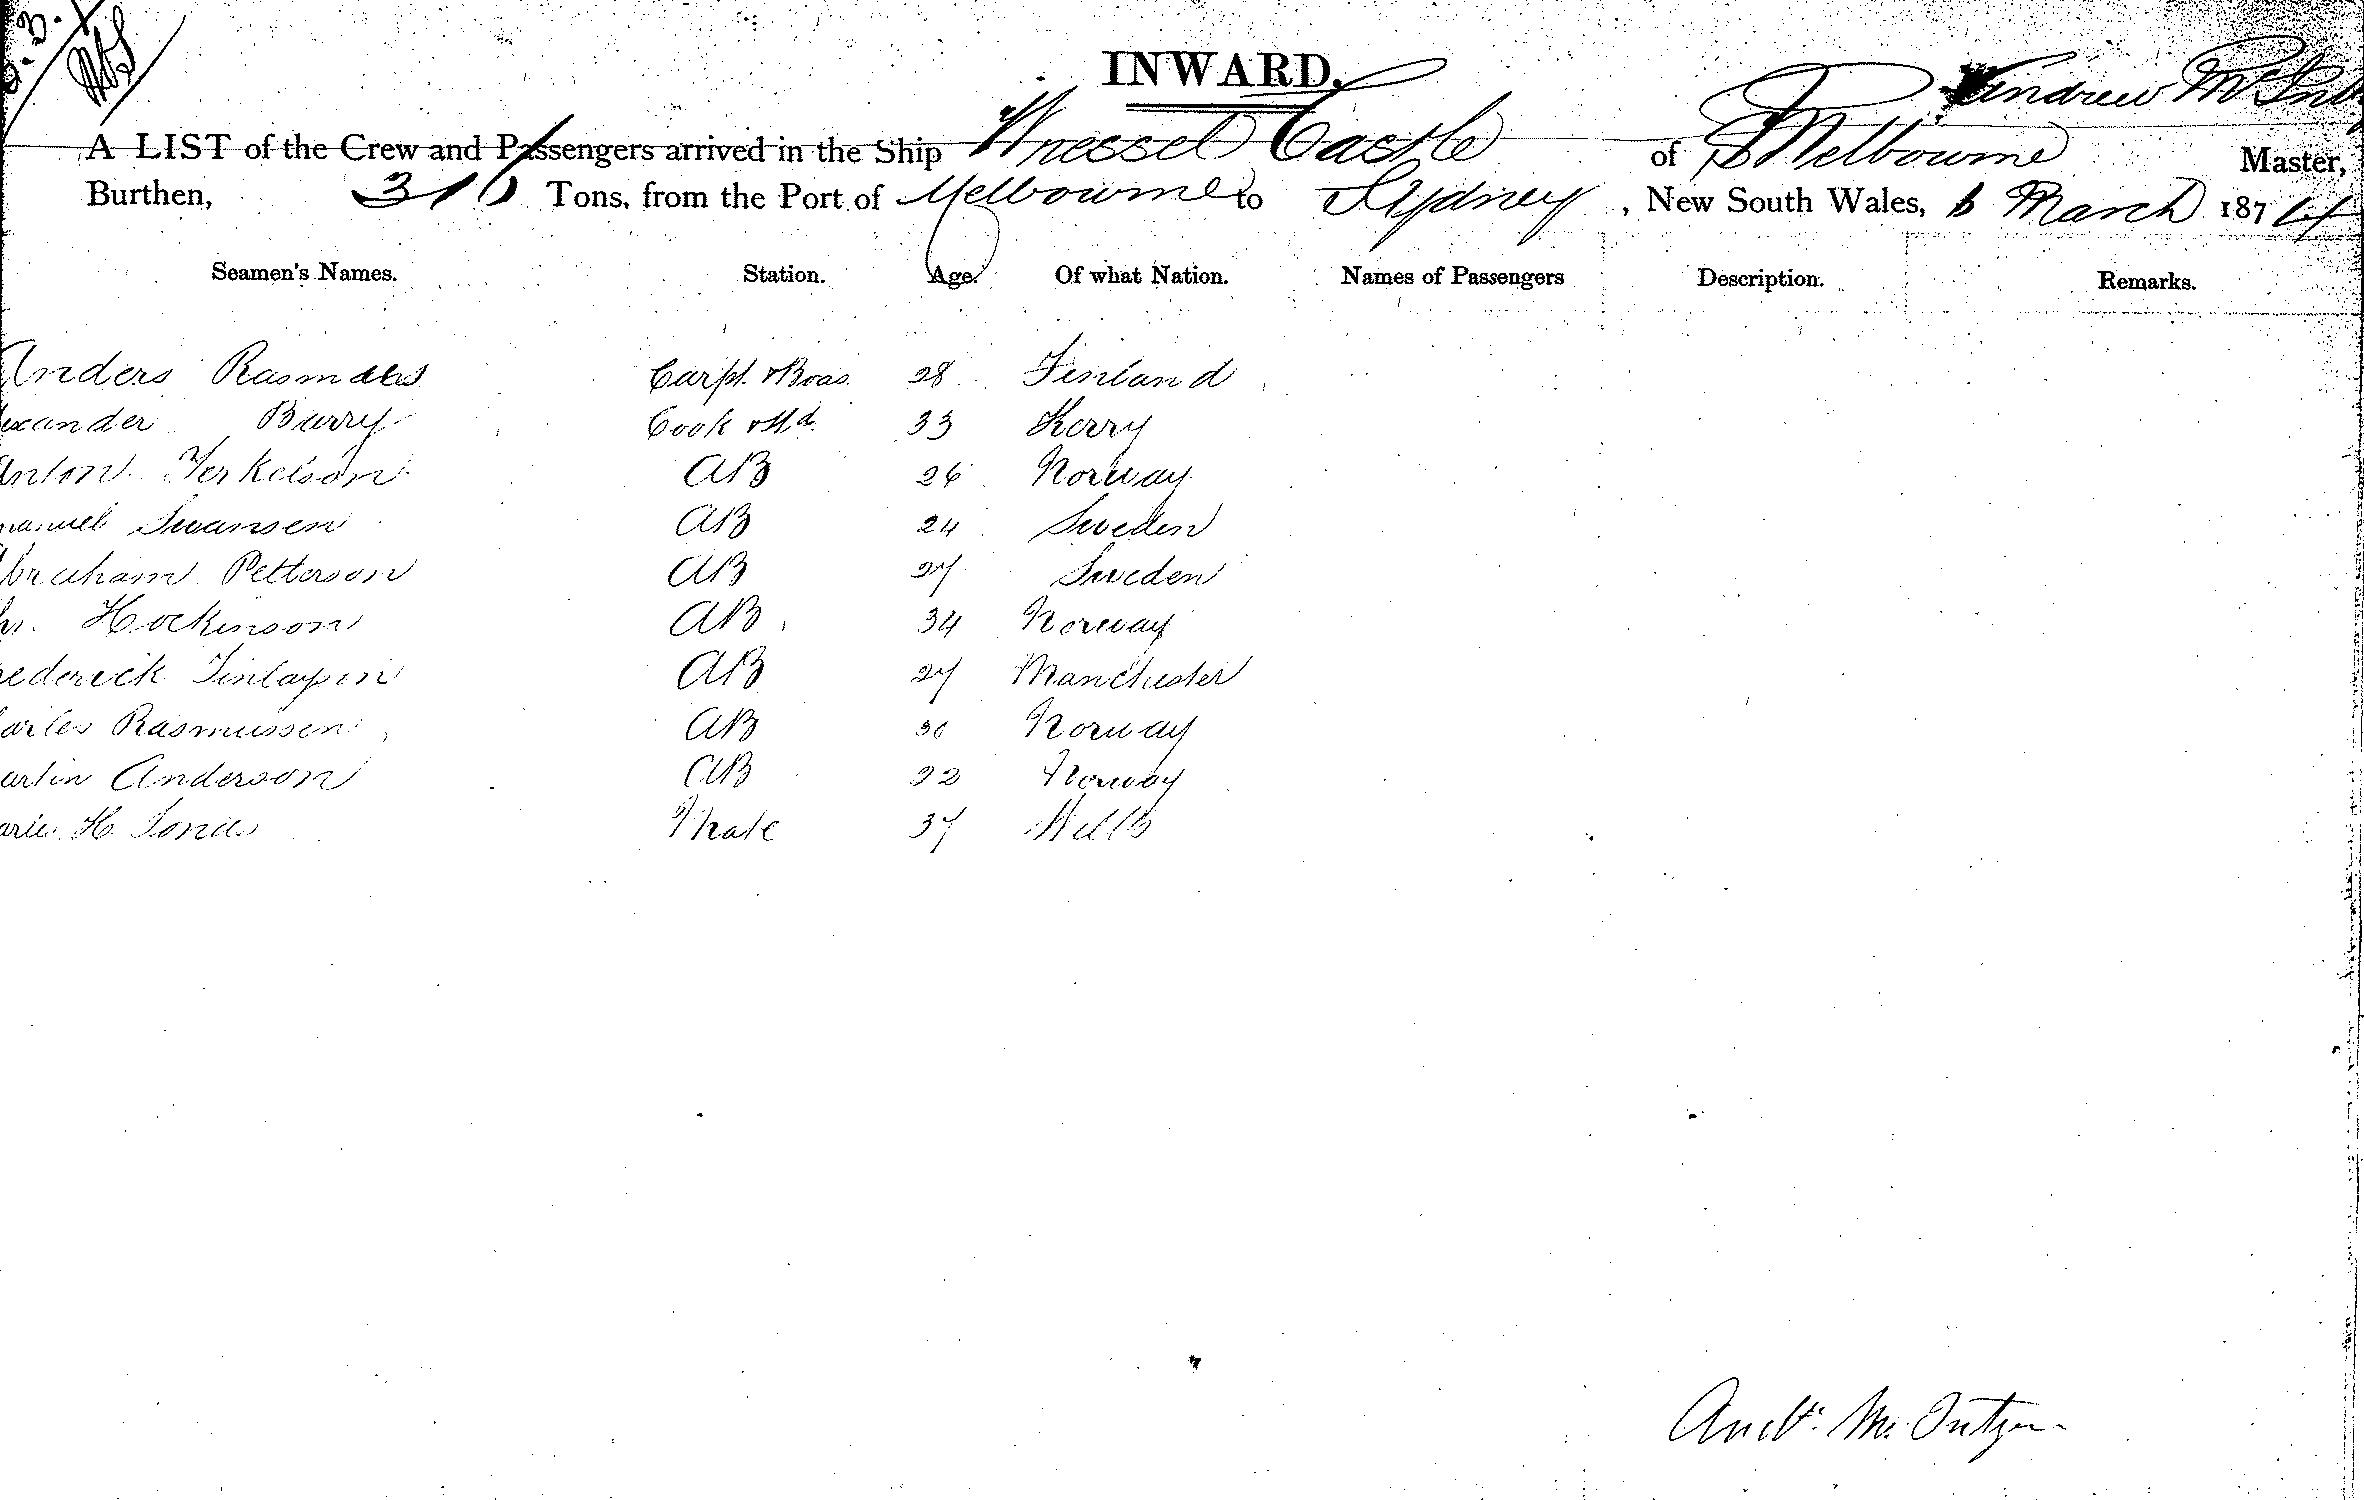 INWARD.
Andrew McInt
A LIST of the Crew and Passengers arrived in the Ship Wressel Castle of Melbourne Master,
Burthen, 310 Tons, from the Port of Melbourne to Sydney, New South Wales, 6 March 1874
Seamen's Names. Station. Age. Of what Nation. Names of Passengers Description. Remarks.
Anders Rasmaas Carpt. & Boas. 28 Finland
exander Barry Cook & Std. 33 Kerry
Anton Terkelson AB 26 Norway
manuel Swansen AB 24 Sweden
Abraham Petterson AB 27 Sweden
Hockinson AB 34 Norway
rederick Finlayson AB 27 Manchester
arles Rasmussen AB 30 Norway
artin Anderson AB 22 Norway
arles H. Jones Mate 37 Wells
Andw. McIntyre